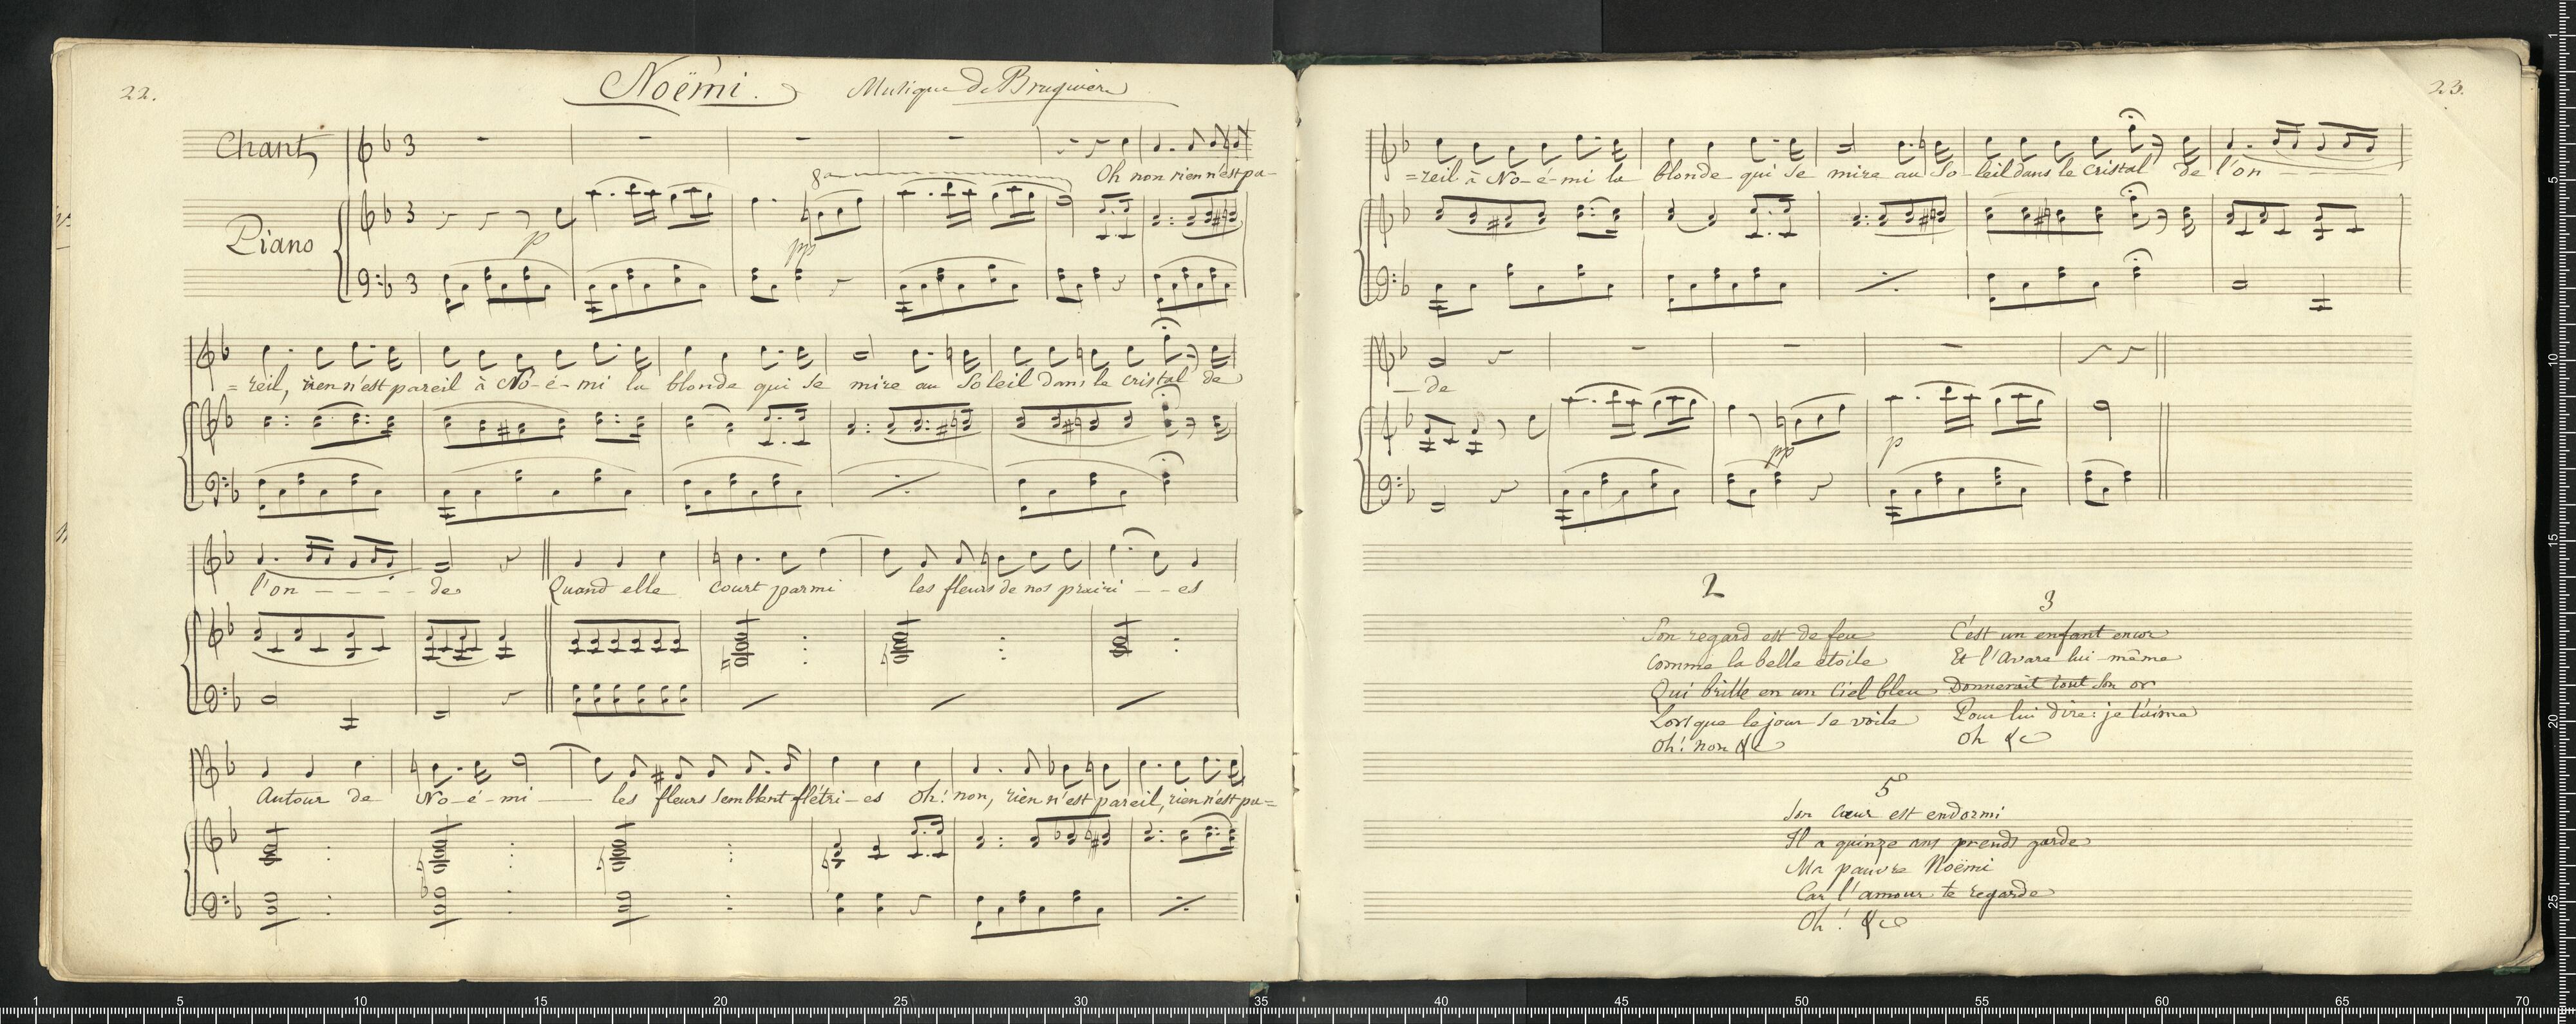 22.
Noëmi. Musique de Bruguière
Chant
3
8a
Oh non rien n'est pa-
Piano
3
p
pp
3
=reil, rien n'est pareil à No-é-mi la blonde qui se mire au Soleil dans le cristal de
l'on - - - - de Quand elle court parmi les fleurs de nos prairi - - es
Autour de No-é-mi — les fleurs semblent flétri-es Oh! non, rien n'est pareil, rien n'est pa=
23.
=reil à No-é-mi la blonde qui se mire au So-leil dans le cristal de l'on - - - -
- de
pp
p
2
Son regard est de feu
comme la belle étoile
Qui brille en un Ciel bleu
Lorsque le jour se voile
Oh! non &c
3
C'est un enfant encor
Et l'Avare lui-même
Donnerait tout son or
Pour lui dire: je t'aime
Oh &c
5
Son cœur est endormi
Il a quinze ans prends garde
Ma pauvre Noëmi
Car l'amour te regarde
Oh! &c
1 5 10 15 20 25 30 35 40 45 50 55 60 65 70
1
5
10
15
20
25